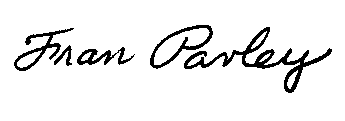 Fran Pavley